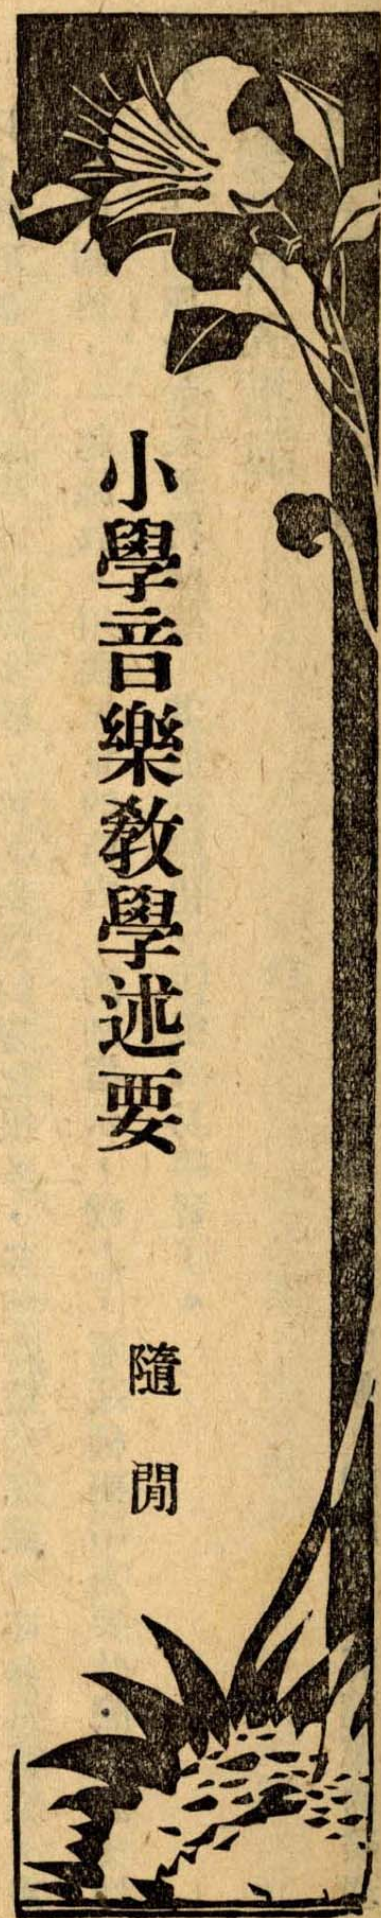 小學音樂教學述要
隨閒